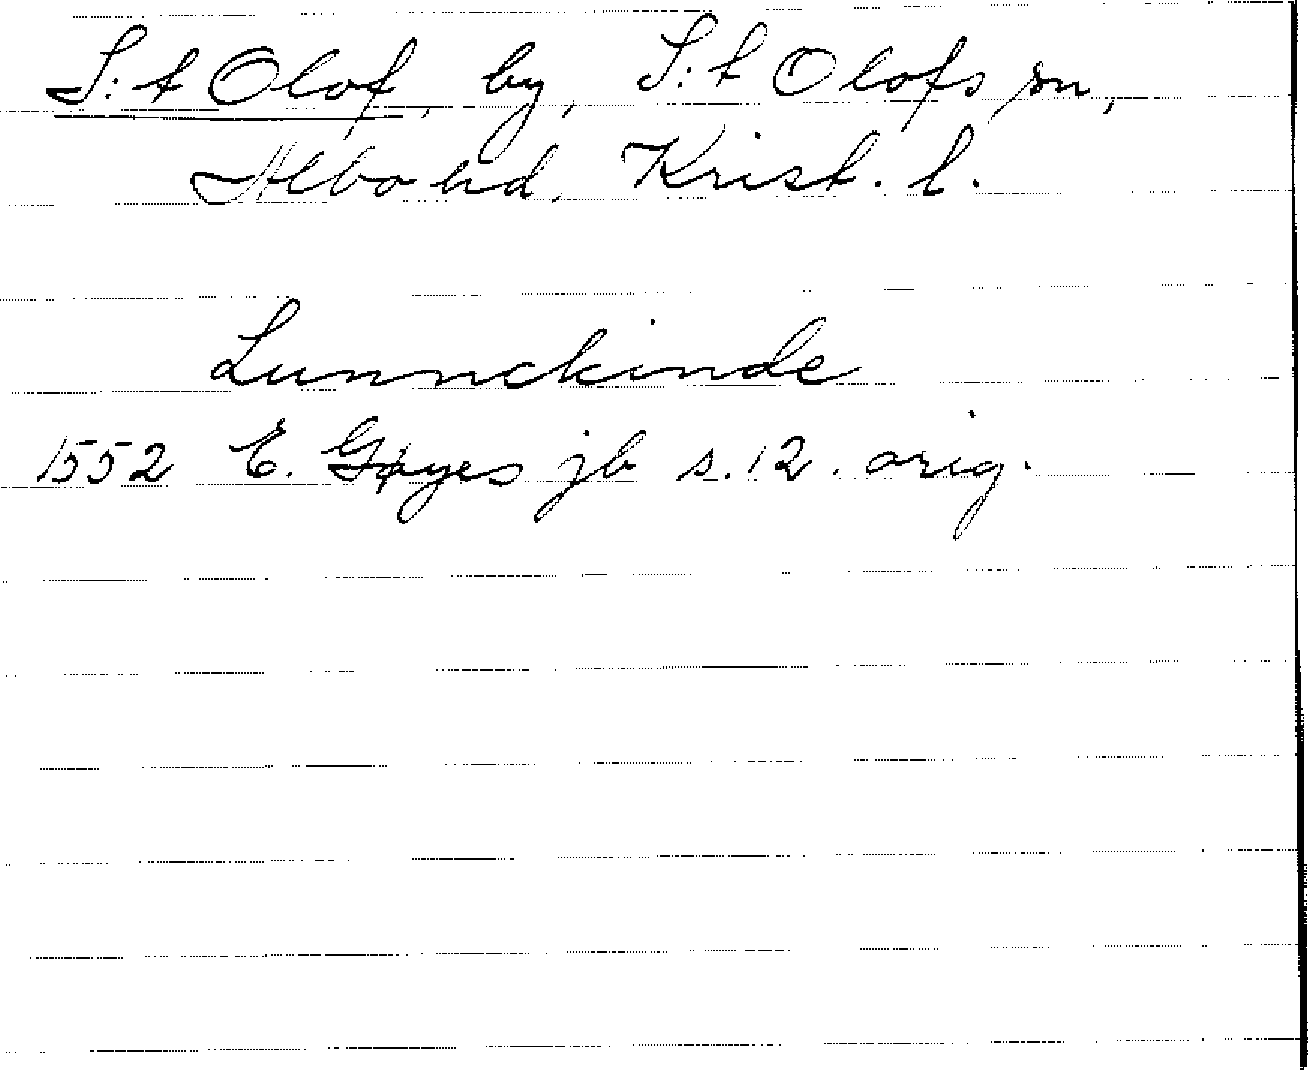 S:t Olof, by, S:t Olofs sn,
Albo hd, Krist. l.
Lunnekinde
1552 E. Gøyes jb s. 12. orig.